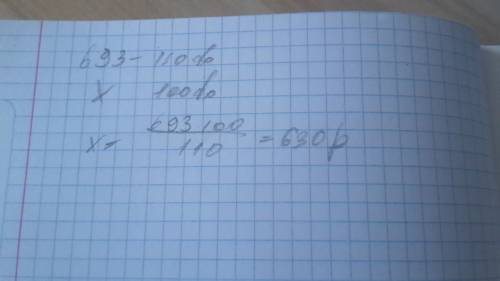 693 - 110%
x 100%
x = 693 100 / 110 = 630 р